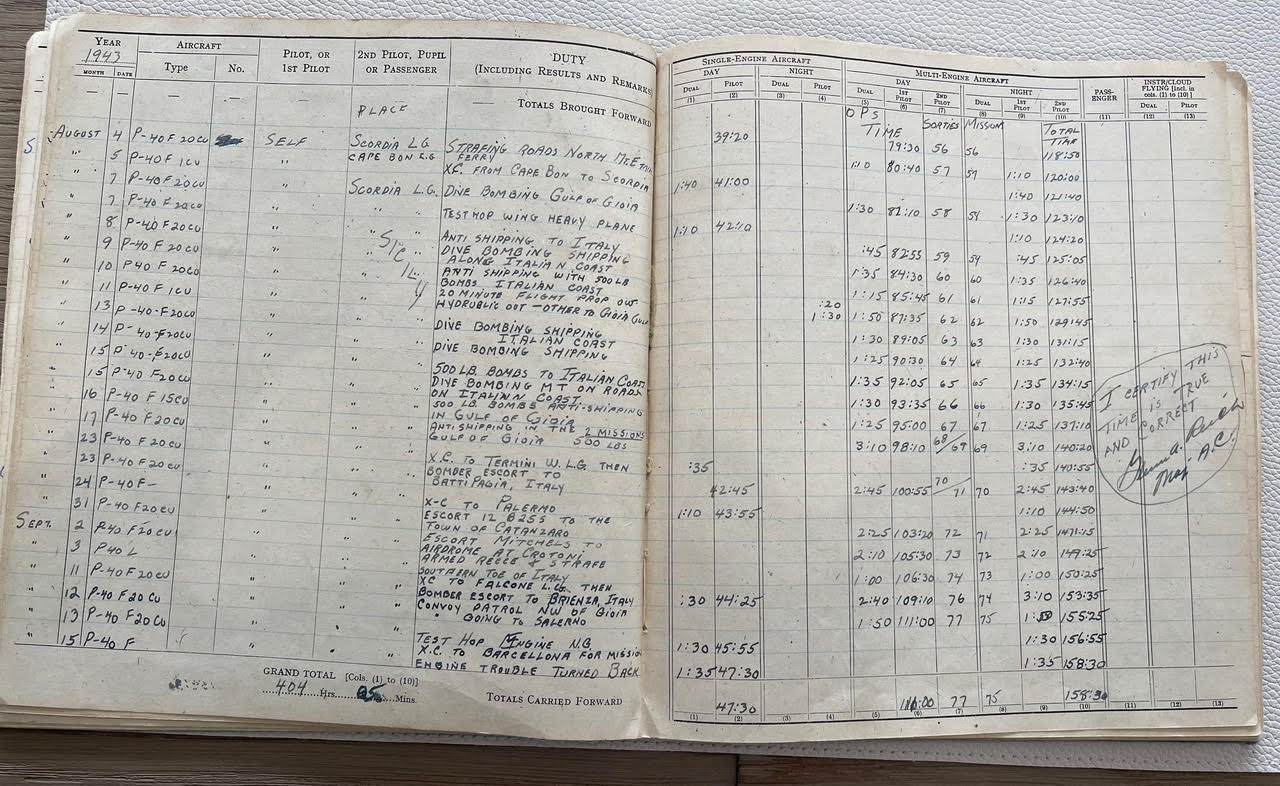 YEAR AIRCRAFT PILOT, OR 1ST PILOT 2ND PILOT, PUPIL OR PASSENGER DUTY (INCLUDING RESULTS AND REMARKS)
1943
MONTH DATE Type No.
PLACE TOTALS BROUGHT FORWARD
AUGUST 4 P-40F 20CU SELF SCORDIA LG STRAFING ROADS NORTH
" 5 P-40F 1CU " CAPE BON L.G FERRY
XC. FROM CAPE BON TO SCORDIA
" 7 P-40F 20CU " SCORDIA L.G. DIVE BOMBING GULF OF GIOIA
" 7 P-40F 20CU " " TEST HOP WING HEAVY PLANE
" 8 P-40F 20CU " " ANTI SHIPPING TO ITALY
" 9 P-40F 20CU " " DIVE BOMBING SHIPPING
ALONG ITALIAN COAST
SICILY
" 10 P40F 20CU " " ANTI SHIPPING WITH 500 LB
BOMBS ITALIAN COAST
" 11 P-40F 1CU " " 20 MINUTE FLIGHT PROP OUT
" 13 P-40-F20CU " " HYDRUBLIC OUT - OTHER TO GIOIA GULF
" 14 P-40-F20CU " " DIVE BOMBING SHIPPING
ITALIAN COAST
" 15 P-40-F20CU " " DIVE BOMBING SHIPPING
" 15 P-40 F20CU " " 500 LB. BOMBS TO ITALIAN COAST
DIVE BOMBING MT ON ROADS
ON ITALIAN COAST
" 16 P-40 F 15CU " " 500 LB. BOMBS ANTI-SHIPPING
IN GULF OF GIOIA
" 17 P-40F 20CU " " ANTI SHIPPING IN THE 2 MISSIONS
GULF OF GIOIA 500 LBS
" 23 P-40F 20CU " " X.C. TO TERMINI W.L.G. THEN
" 23 P-40F 20CU " " BOMBER ESCORT TO
BATTIPAGIA, ITALY
" 24 P-40F- " " X-C TO PALERMO
" 31 P-40F20CU " " ESCORT 12 B25S TO THE
TOWN OF CATANZARO
SEPT. 2 P40F20CU " " ESCORT MITCHELS TO
AIRDROME AT CROTONI
" 3 P40L " " ARMED RECCE & STRAFE
SOUTHERN TOE OF ITALY
" 11 P-40F20CU " " XC TO FALCONE L.G. THEN
" 12 P-40F 20CU " " BOMBER ESCORT TO BRIENZA, ITALY
" 13 P-40F 20CU " " CONVOY PATROL NW OF GIOIA
GOING TO SALERNO
" 15 P-40F " " TEST HOP ENGINE N.G
X.C. TO BARCELLONA FOR MISSION
ENGINE TROUBLE TURNED BACK
GRAND TOTAL [Cols. (1) to (10)]
404 Hrs. 05 Mins. TOTALS CARRIED FORWARD
SINGLE-ENGINE AIRCRAFT MULTI-ENGINE AIRCRAFT PASS-ENGER INSTR/CLOUD FLYING [Incl. in cols. (1) to (10)]
DAY NIGHT DAY NIGHT
DUAL PILOT DUAL PILOT DUAL 1ST PILOT 2ND PILOT DUAL 1ST PILOT 2ND PILOT DUAL PILOT
(1) (2) (3) (4) (5) (6) (7) (8) (9) (10) (11) (12) (13)
OPS TIME SORTIES MISSION TOTAL TIME
39:20 79:30 56 56 118:50
1:10 80:40 57 57 1:10 120:00
1:40 41:00 1:40 121:40
1:30 82:10 58 58 1:30 123:10
1:10 42:10 1:10 124:20
:45 82:55 59 59 :45 125:05
1:35 84:30 60 60 1:35 126:40
1:15 85:45 61 61 1:15 127:55
:20
1:30 1:50 87:35 62 62 1:50 129:45
1:30 89:05 63 63 1:30 131:15
1:25 90:30 64 64 1:25 132:40
1:35 92:05 65 65 1:35 134:15
1:30 93:35 66 66 1:30 135:45
1:25 95:00 67 67 1:25 137:10
3:10 98:10 68/69 69 3:10 140:20
:35 :35 140:55
42:45 2:45 100:55 70/71 70 2:45 143:40
1:10 43:55 1:10 144:50
2:25 103:20 72 71 2:25 147:15
2:10 105:30 73 72 2:10 149:25
1:00 106:30 74 73 1:00 150:25
:30 44:25 2:40 109:10 76 74 3:10 153:35
1:50 111:00 77 75 155:25
1:30 45:55 1:30 156:55
1:35 47:30 1:35 158:30
47:30 111:00 77 75 158:30
(1) (2) (3) (4) (5) (6) (7) (8) (9) (10) (11) (12) (13)
I CERTIFY THIS
TIME IS TRUE
AND CORRECT
Maj. A.C.